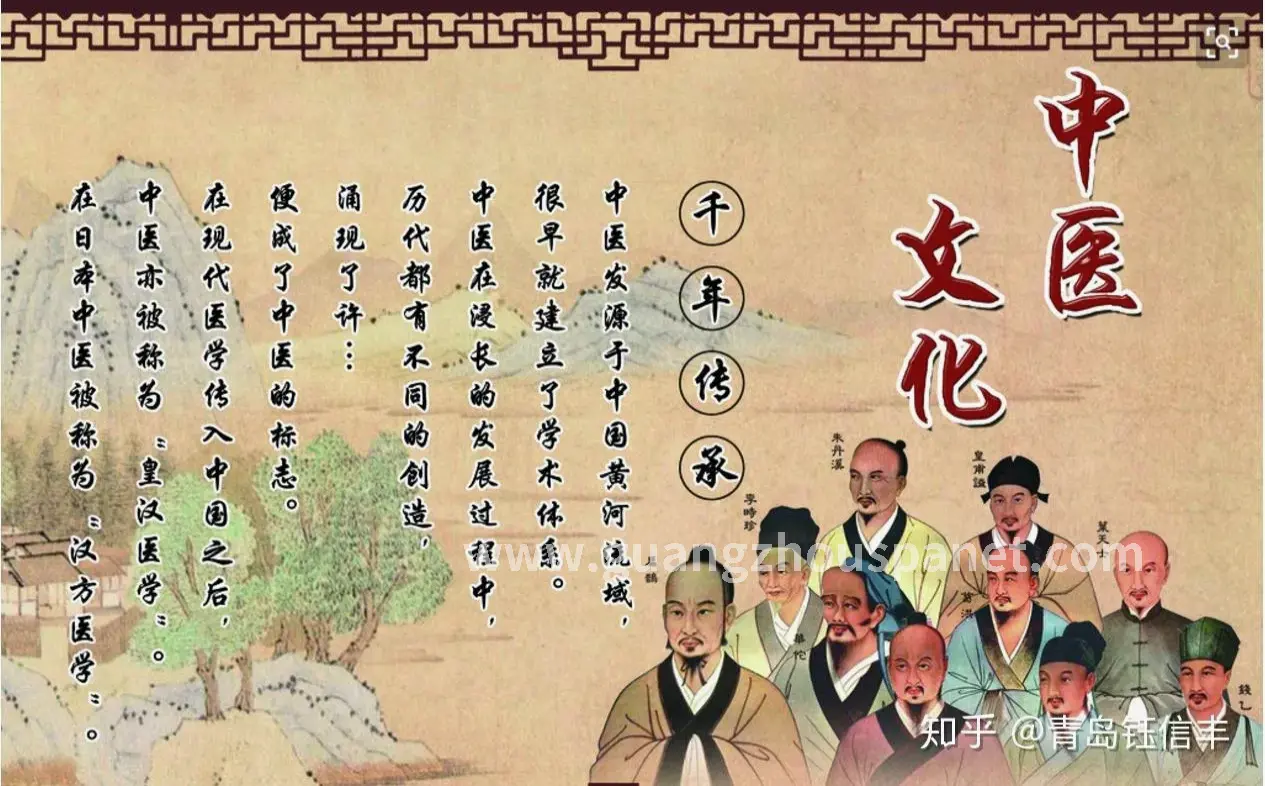 中医
文化
千年传承
中医发源于中国黄河流域，
很早就建立了学术体系。
中医在浸长的发展过程中，
历代都有不同的创造，
涌现了许…
便成了中医的标志。
在现代医学传入中国之后，
中医亦被称为“皇汉医学”。
在日本中医被称为“汉方医学”。
朱丹溪
皇甫謐
李時珍
葉天士
鵲
葛洪
華佗
錢乙
www.guangzhouspanet.com
知乎 @青岛钰信丰